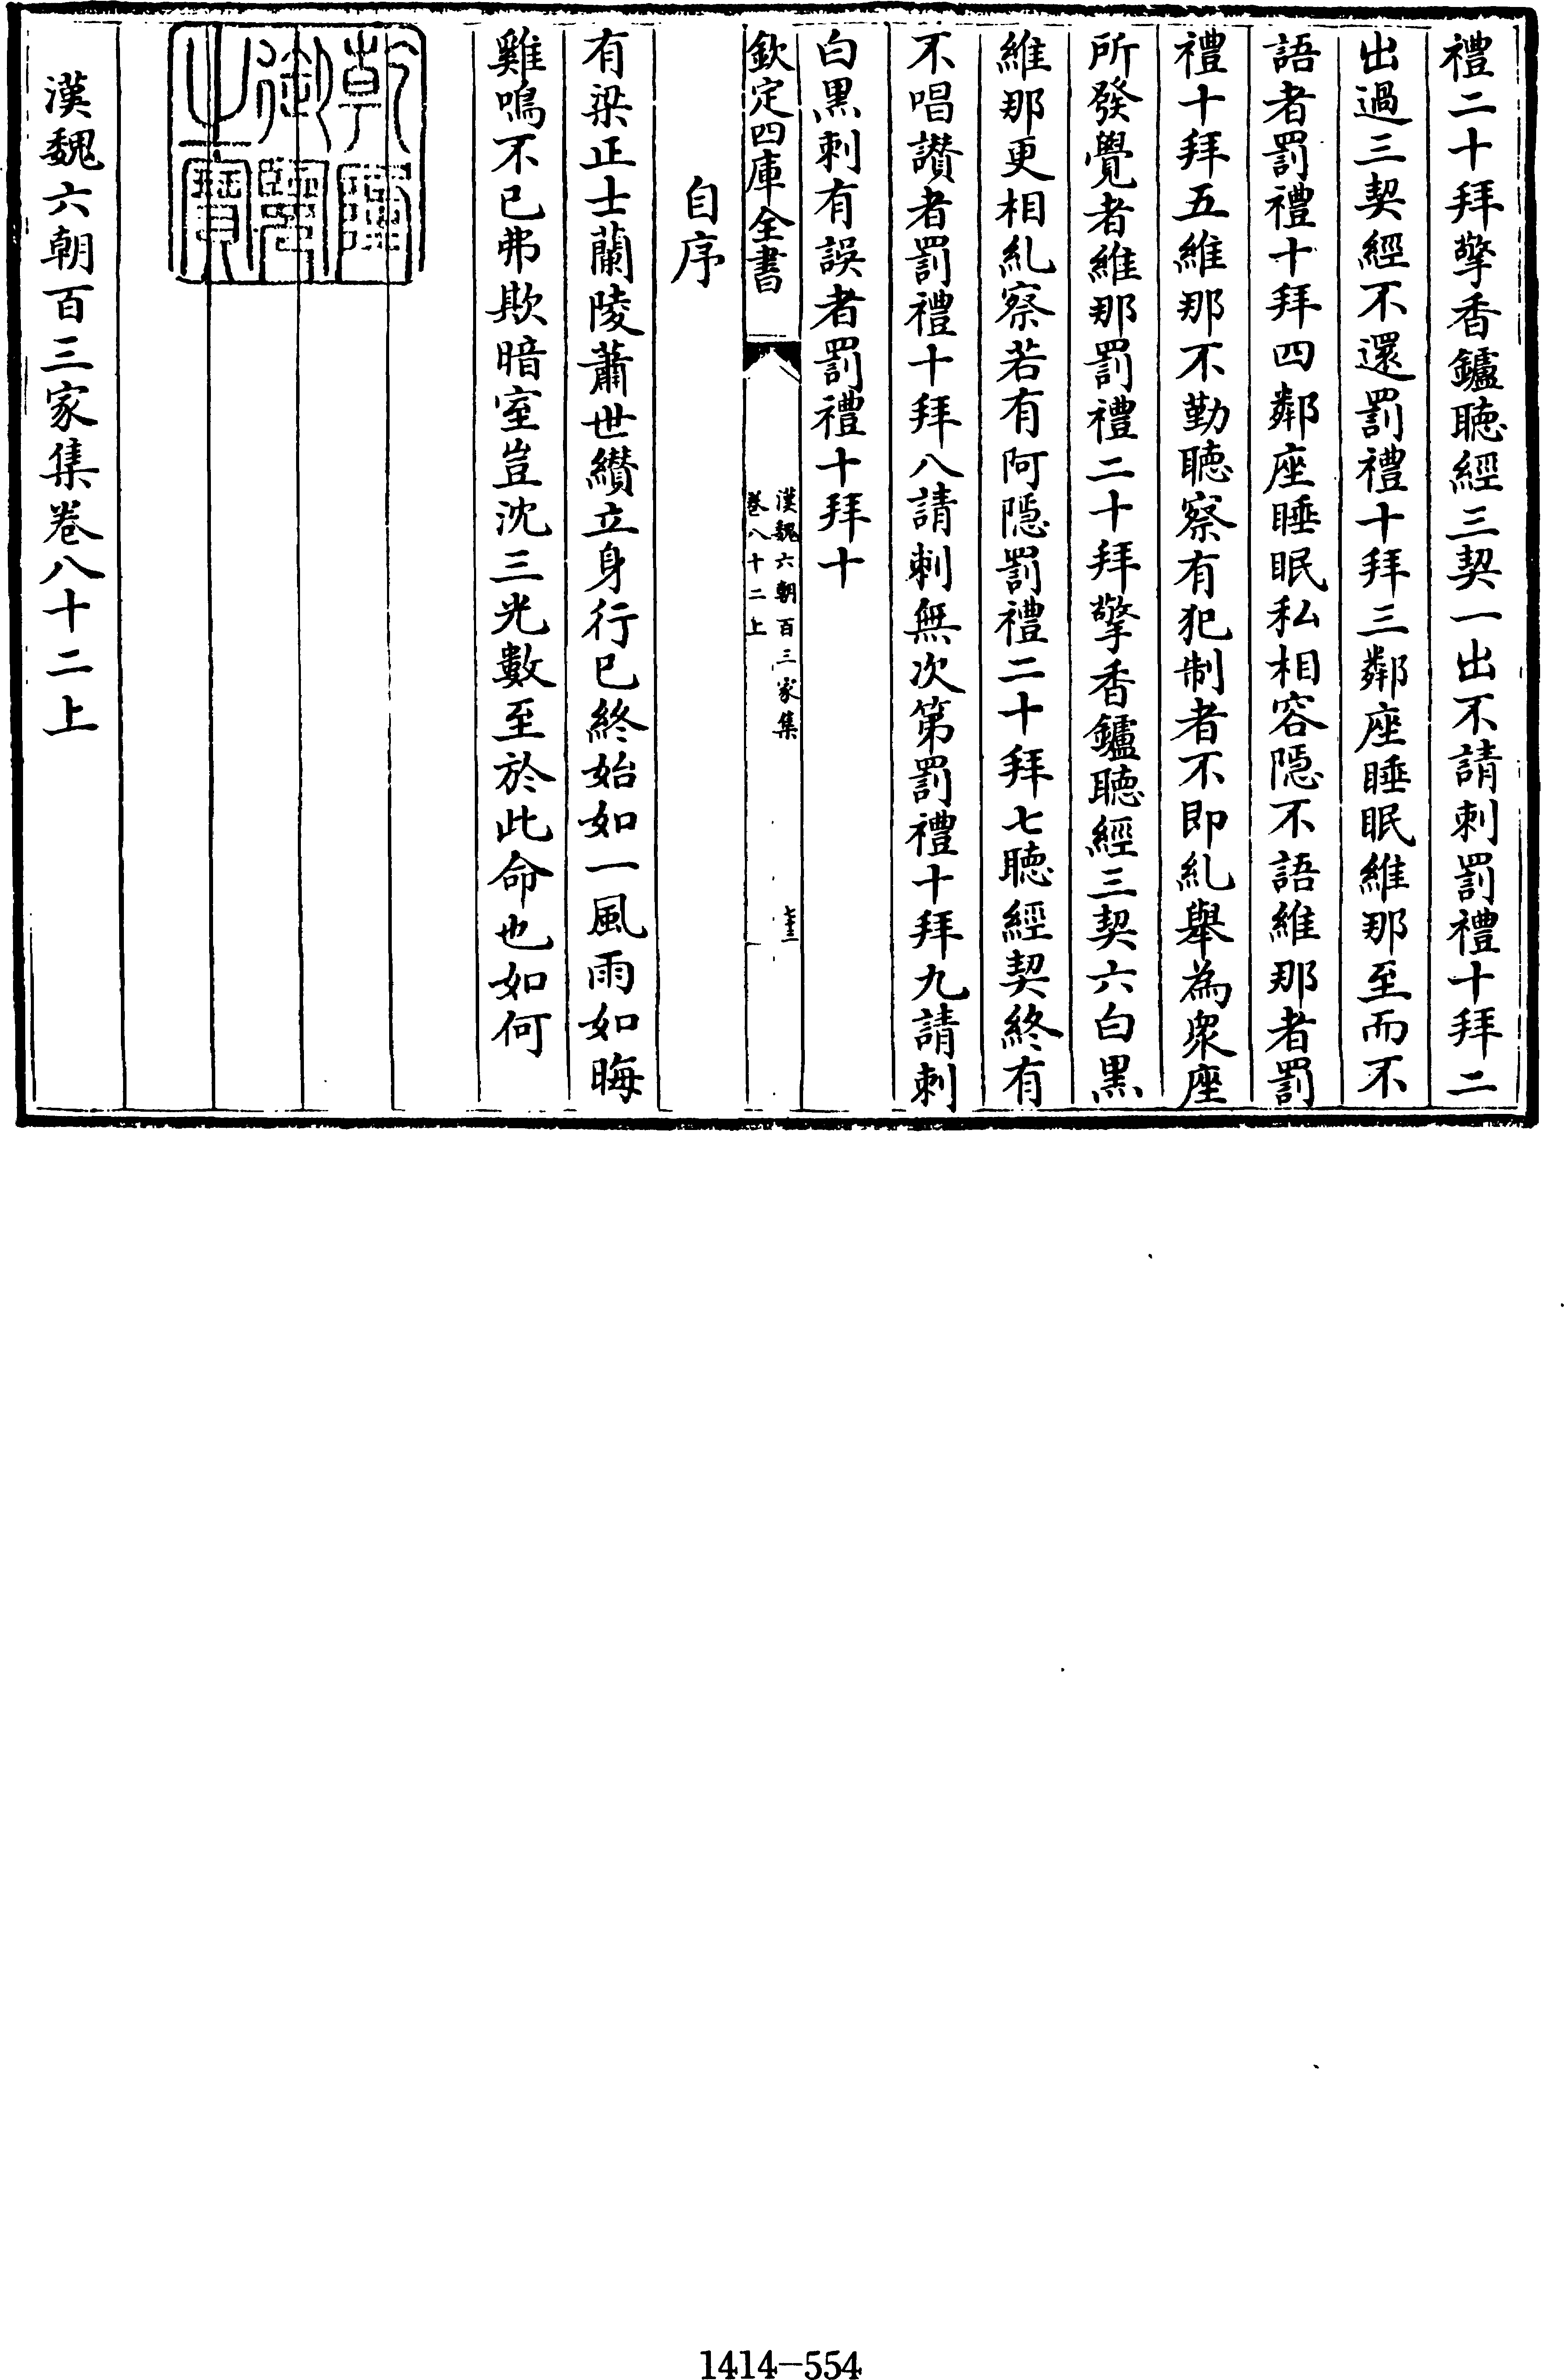 禮二十拜擎香鑪聽經三契一出不請刺罰禮十拜二
出過三契經不還罰禮十拜三鄰座睡眠維那至而不
語者罰禮十拜四鄰座睡眠私相容隱不語維那者罰
禮十拜五維那不勤聽察有犯制者不即糺舉為衆座
所發覺者維那罰禮二十拜擎香鑪聽經三契六白黒
維那更相糺察若有阿隱罰禮二十拜七聽經契終有
不唱讃者罰禮十拜八請刺無次第罰禮十拜九請刺
白黒刺有誤者罰禮十拜十
欽定四庫全書
漢魏六朝百三家集
卷八十二上
自序
有梁正士蘭陵蕭世纘立身行已終始如一風雨如晦
雞鳴不已弗欺暗室豈沈三光數至於此命也如何
乾隆御覽之寶
漢魏六朝百三家集卷八十二上
1414-554